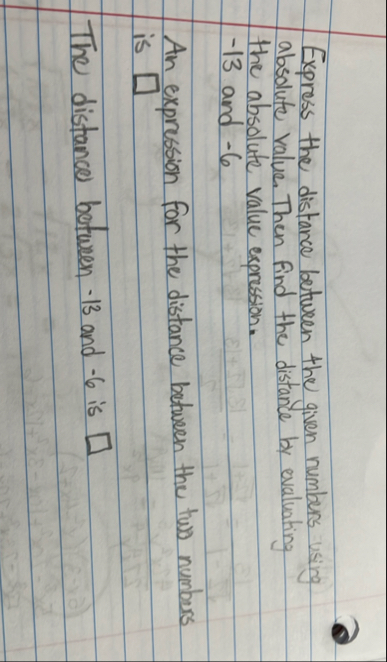 Express the distance between the given numbers using
absolute value. Then find the distance by evaluating
the absolute value expression.
-13 and -6
An expression for the distance between the two numbers
is □
The distance between -13 and -6 is □